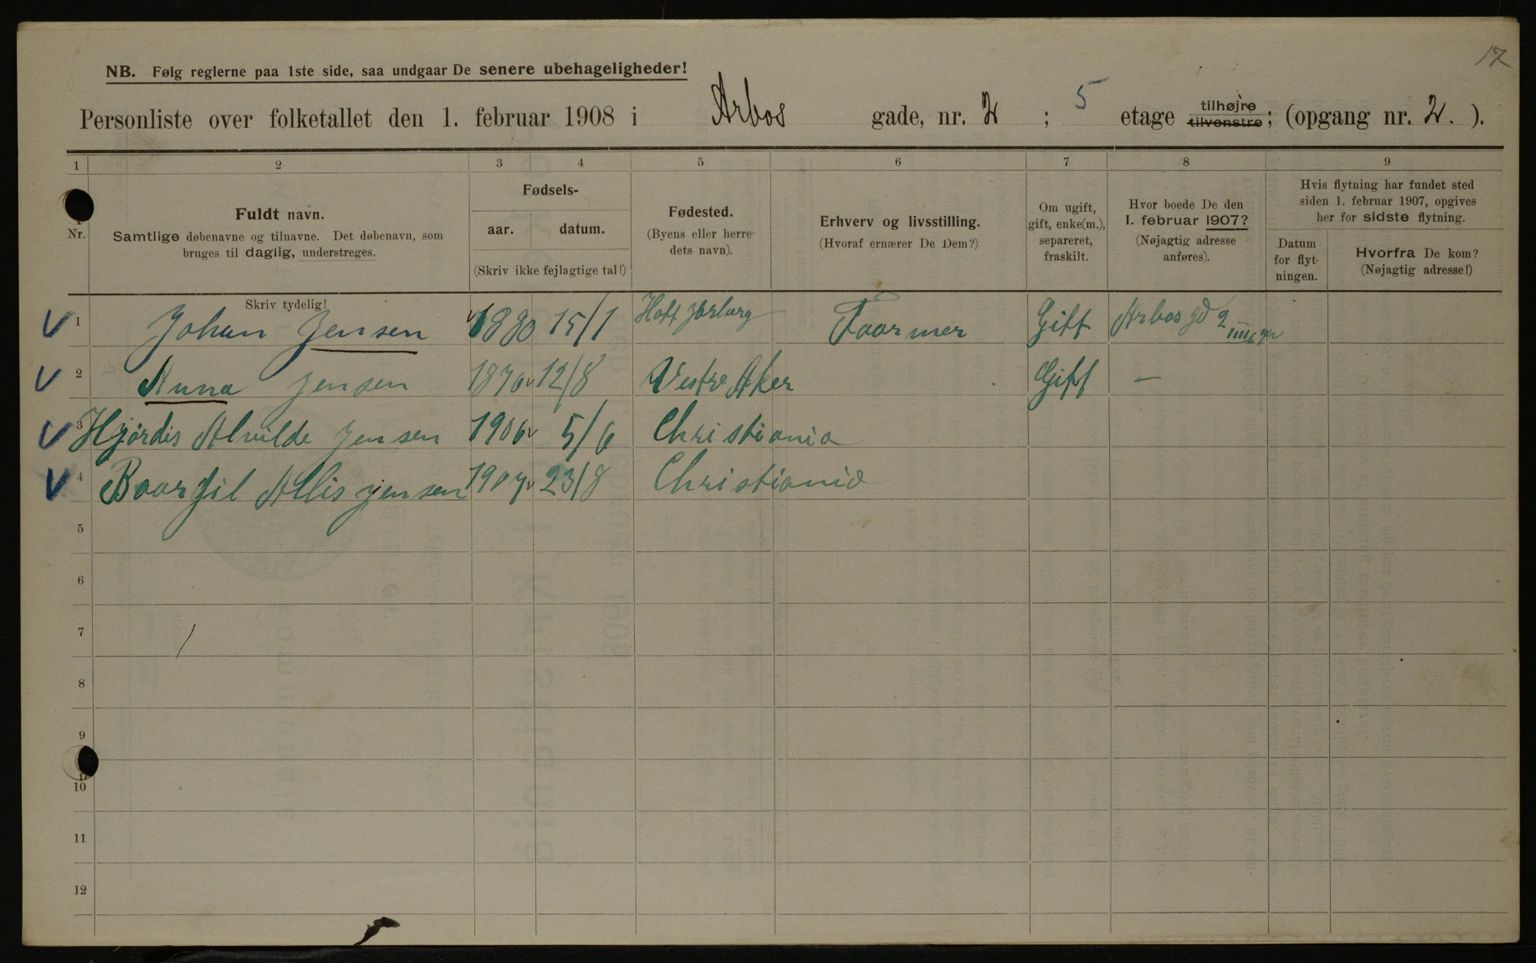 17
NB. Følg reglerne paa 1ste side, saa undgaar De senere ubehageligheder!
Personliste over folketallet den 1. februar 1908 i Arbos gade, nr. 2 ; 5 etage tilhøjre tilvenstre ; (opgang nr. 2. ).
1 2 3 4 5 6 7 8 9
Nr.
Fuldt navn.
Samtlige døbenavne og tilnavne. Det døbenavn, som
bruges til daglig, understreges.
Skriv tydelig!
Fødsels-
aar. datum.
(Skriv ikke fejlagtige tal!)
Fødested.
(Byens eller herre-
dets navn).
Erhverv og livsstilling.
(Hvoraf ernærer De Dem?)
Om ugift,
gift, enke(m.),
separeret,
fraskilt.
Hvor boede De den
1. februar 1907?
(Nøjagtig adresse
anføres).
Hvis flytning har fundet sted
siden 1. februar 1907, opgives
her for sidste flytning.
Datum
for flyt-
ningen.
Hvorfra De kom?
(Nøjagtig adresse!)
1 Johan Jensen 1880 15/1 Gift Arbos gd 2
2 Anna Jensen 1870 12/8 Vestre Aker Gift —
3 Hjørdis Alvilde Jensen 1906 5/6 Christiania
4 Jensen 1907 23/8 Christiania
5
6
7
8
9
10
11
12